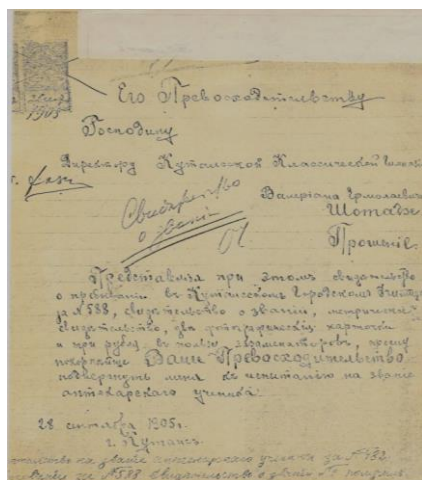 1905
Его Превосходительству
Господину
Директору Кутаисской Классической
Валериана Ермолаевича
Прошеніе.
Свидетельство
о званіи
Представляя при этомъ свидетельство
о пребывании въ Кутаисскомъ Городскомъ
за № 588, свидетельство о званіи, метрическое
свидетельство, два фотографическія карточки
и три рубля въ пользу экзаменаторовъ, прошу
покорнейше Ваше Превосходительство
подвергнуть меня къ испытанію на званіе
аптекарскаго ученика.
28 сентября 1905г.
г. Кутаисъ.
на званіе аптекарскаго ученика за №
№ 588 свидетельство о званіи